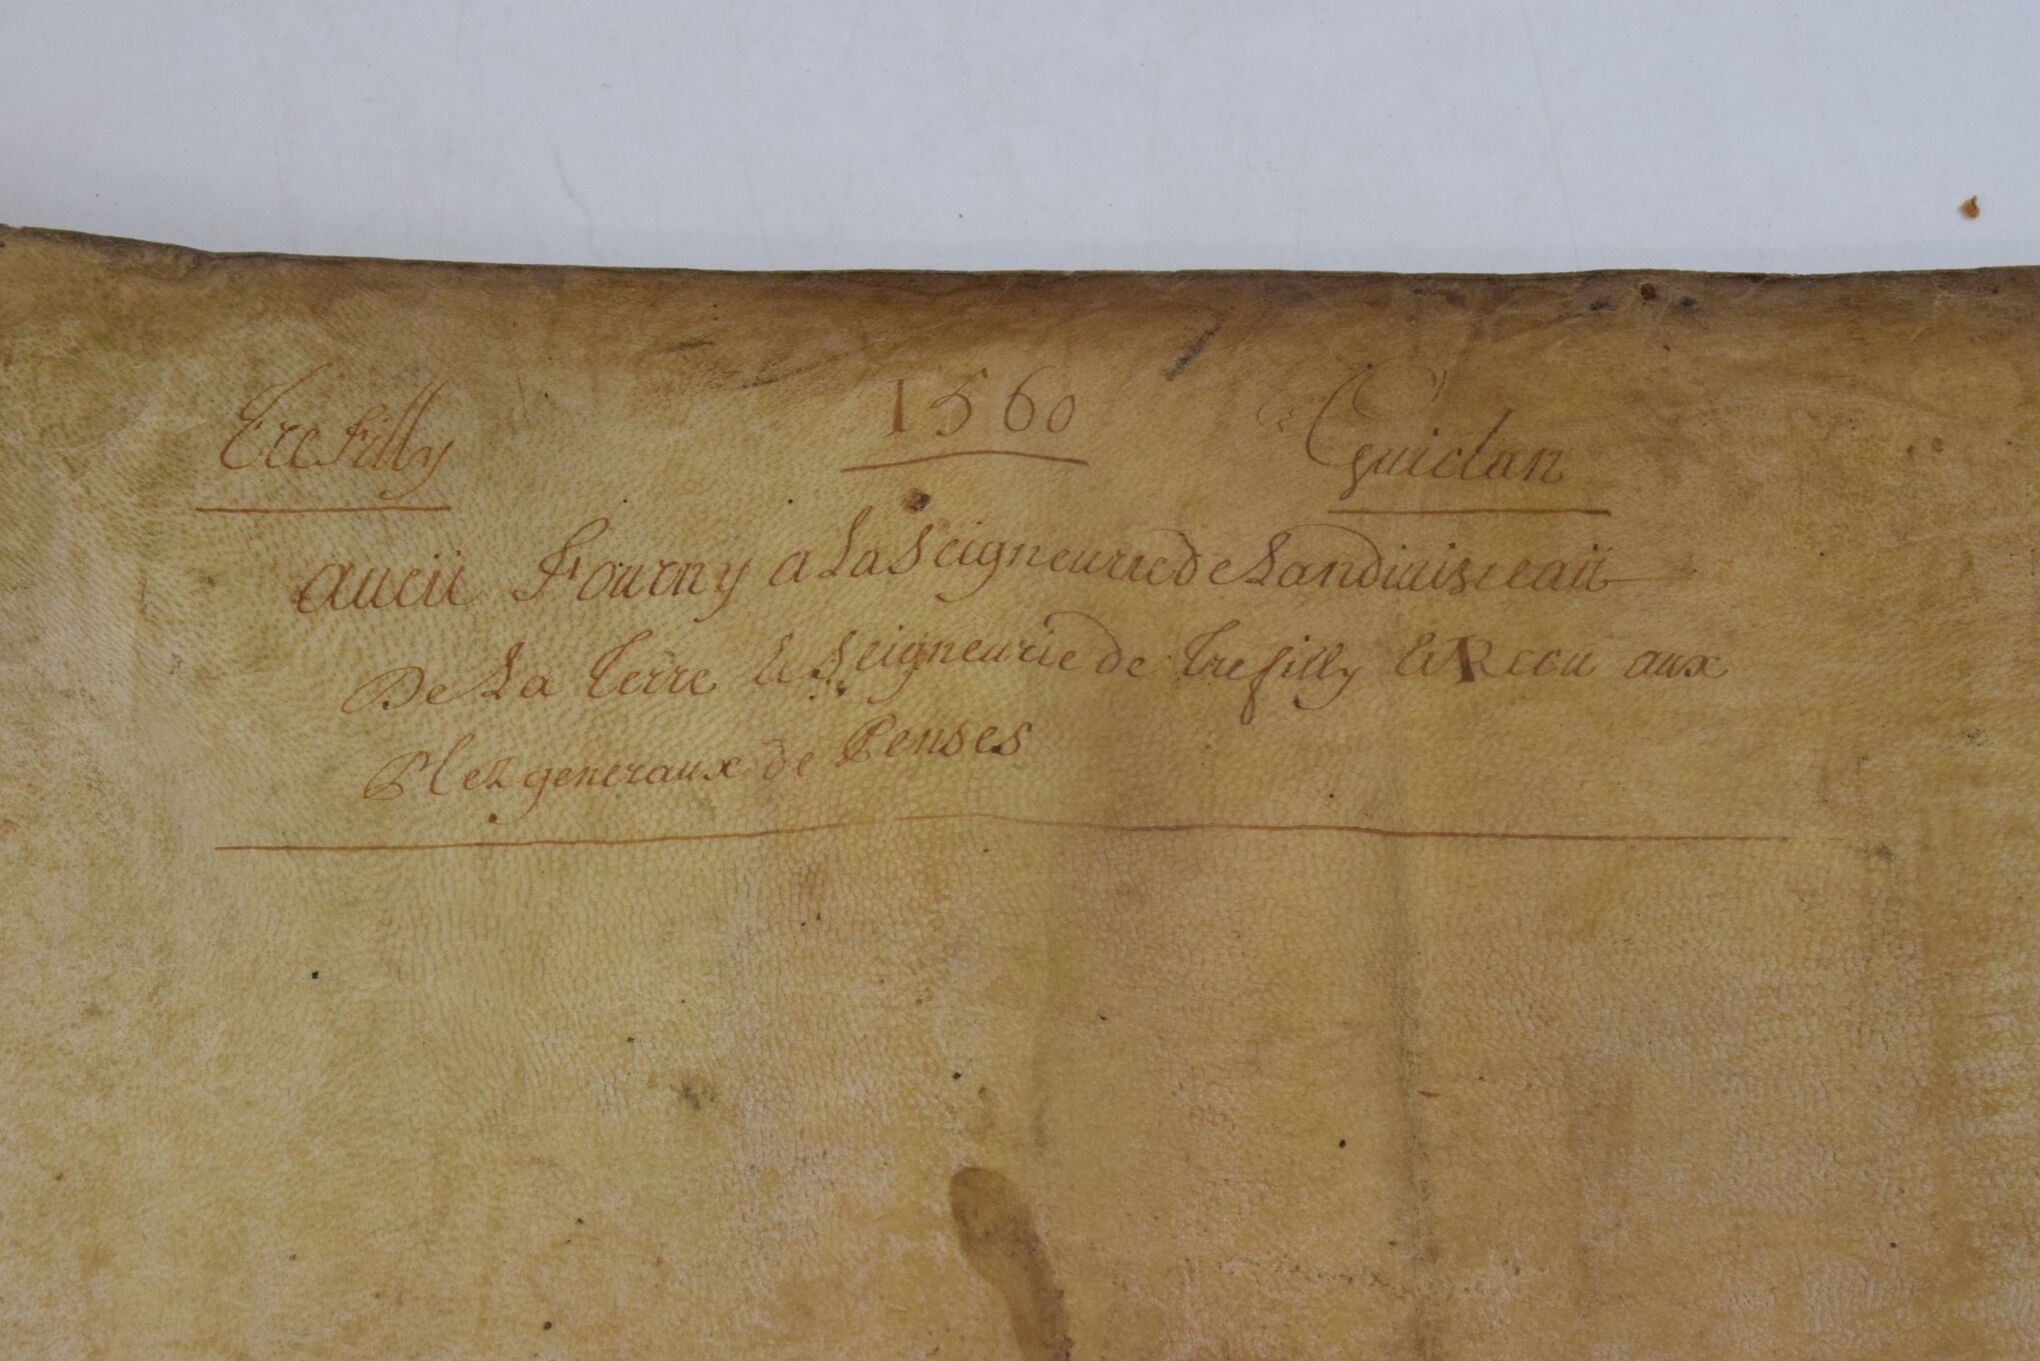 Trefilly 1560 Guiclan
aueü Fourny a La Seigneurie de Landiuisieaü
De La Terre Et Seigneurie de Trefilly Et Receu aux
Plez generaux de Penses